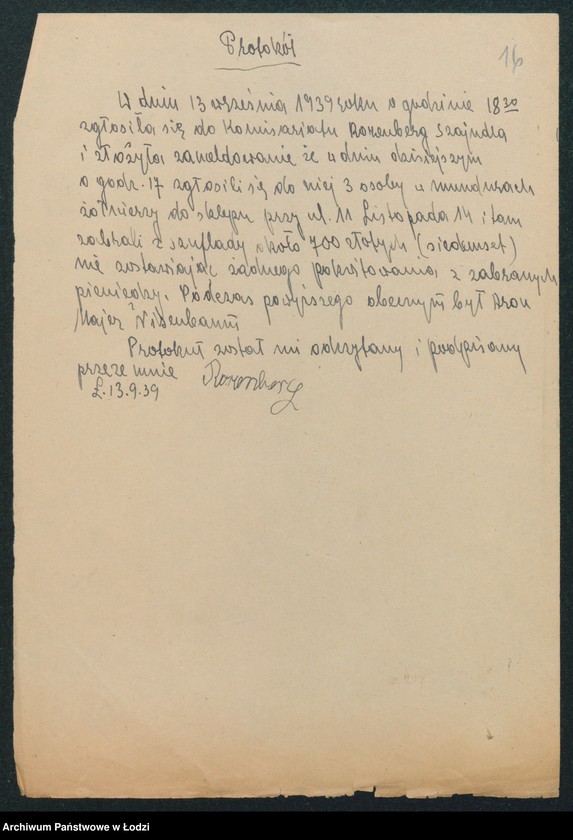 Protokół
16
W dniu 13 września 1939 roku o godzinie 18 30
zgłosiła się do Komisariatu Rozenberg Szajndla
i złożyła zameldowanie że w dniu dzisiejszym
o godz. 17 zgłosili się do niej 3 osoby w mundurach
żołnierzy do sklepu przy ul. 11 Listopada 14 i tam
zabrali z szuflady około 700 złotych (siedemset)
nie zostawiając żadnego pokwitowania z zabranych
pieniędzy. Podczas powyższego obecnym był Aron
Majer
Protokuł został mi odczytany i podpisany
przeze mnie Rozenberg
Ł. 13.9.39
Archiwum Państwowe w Łodzi